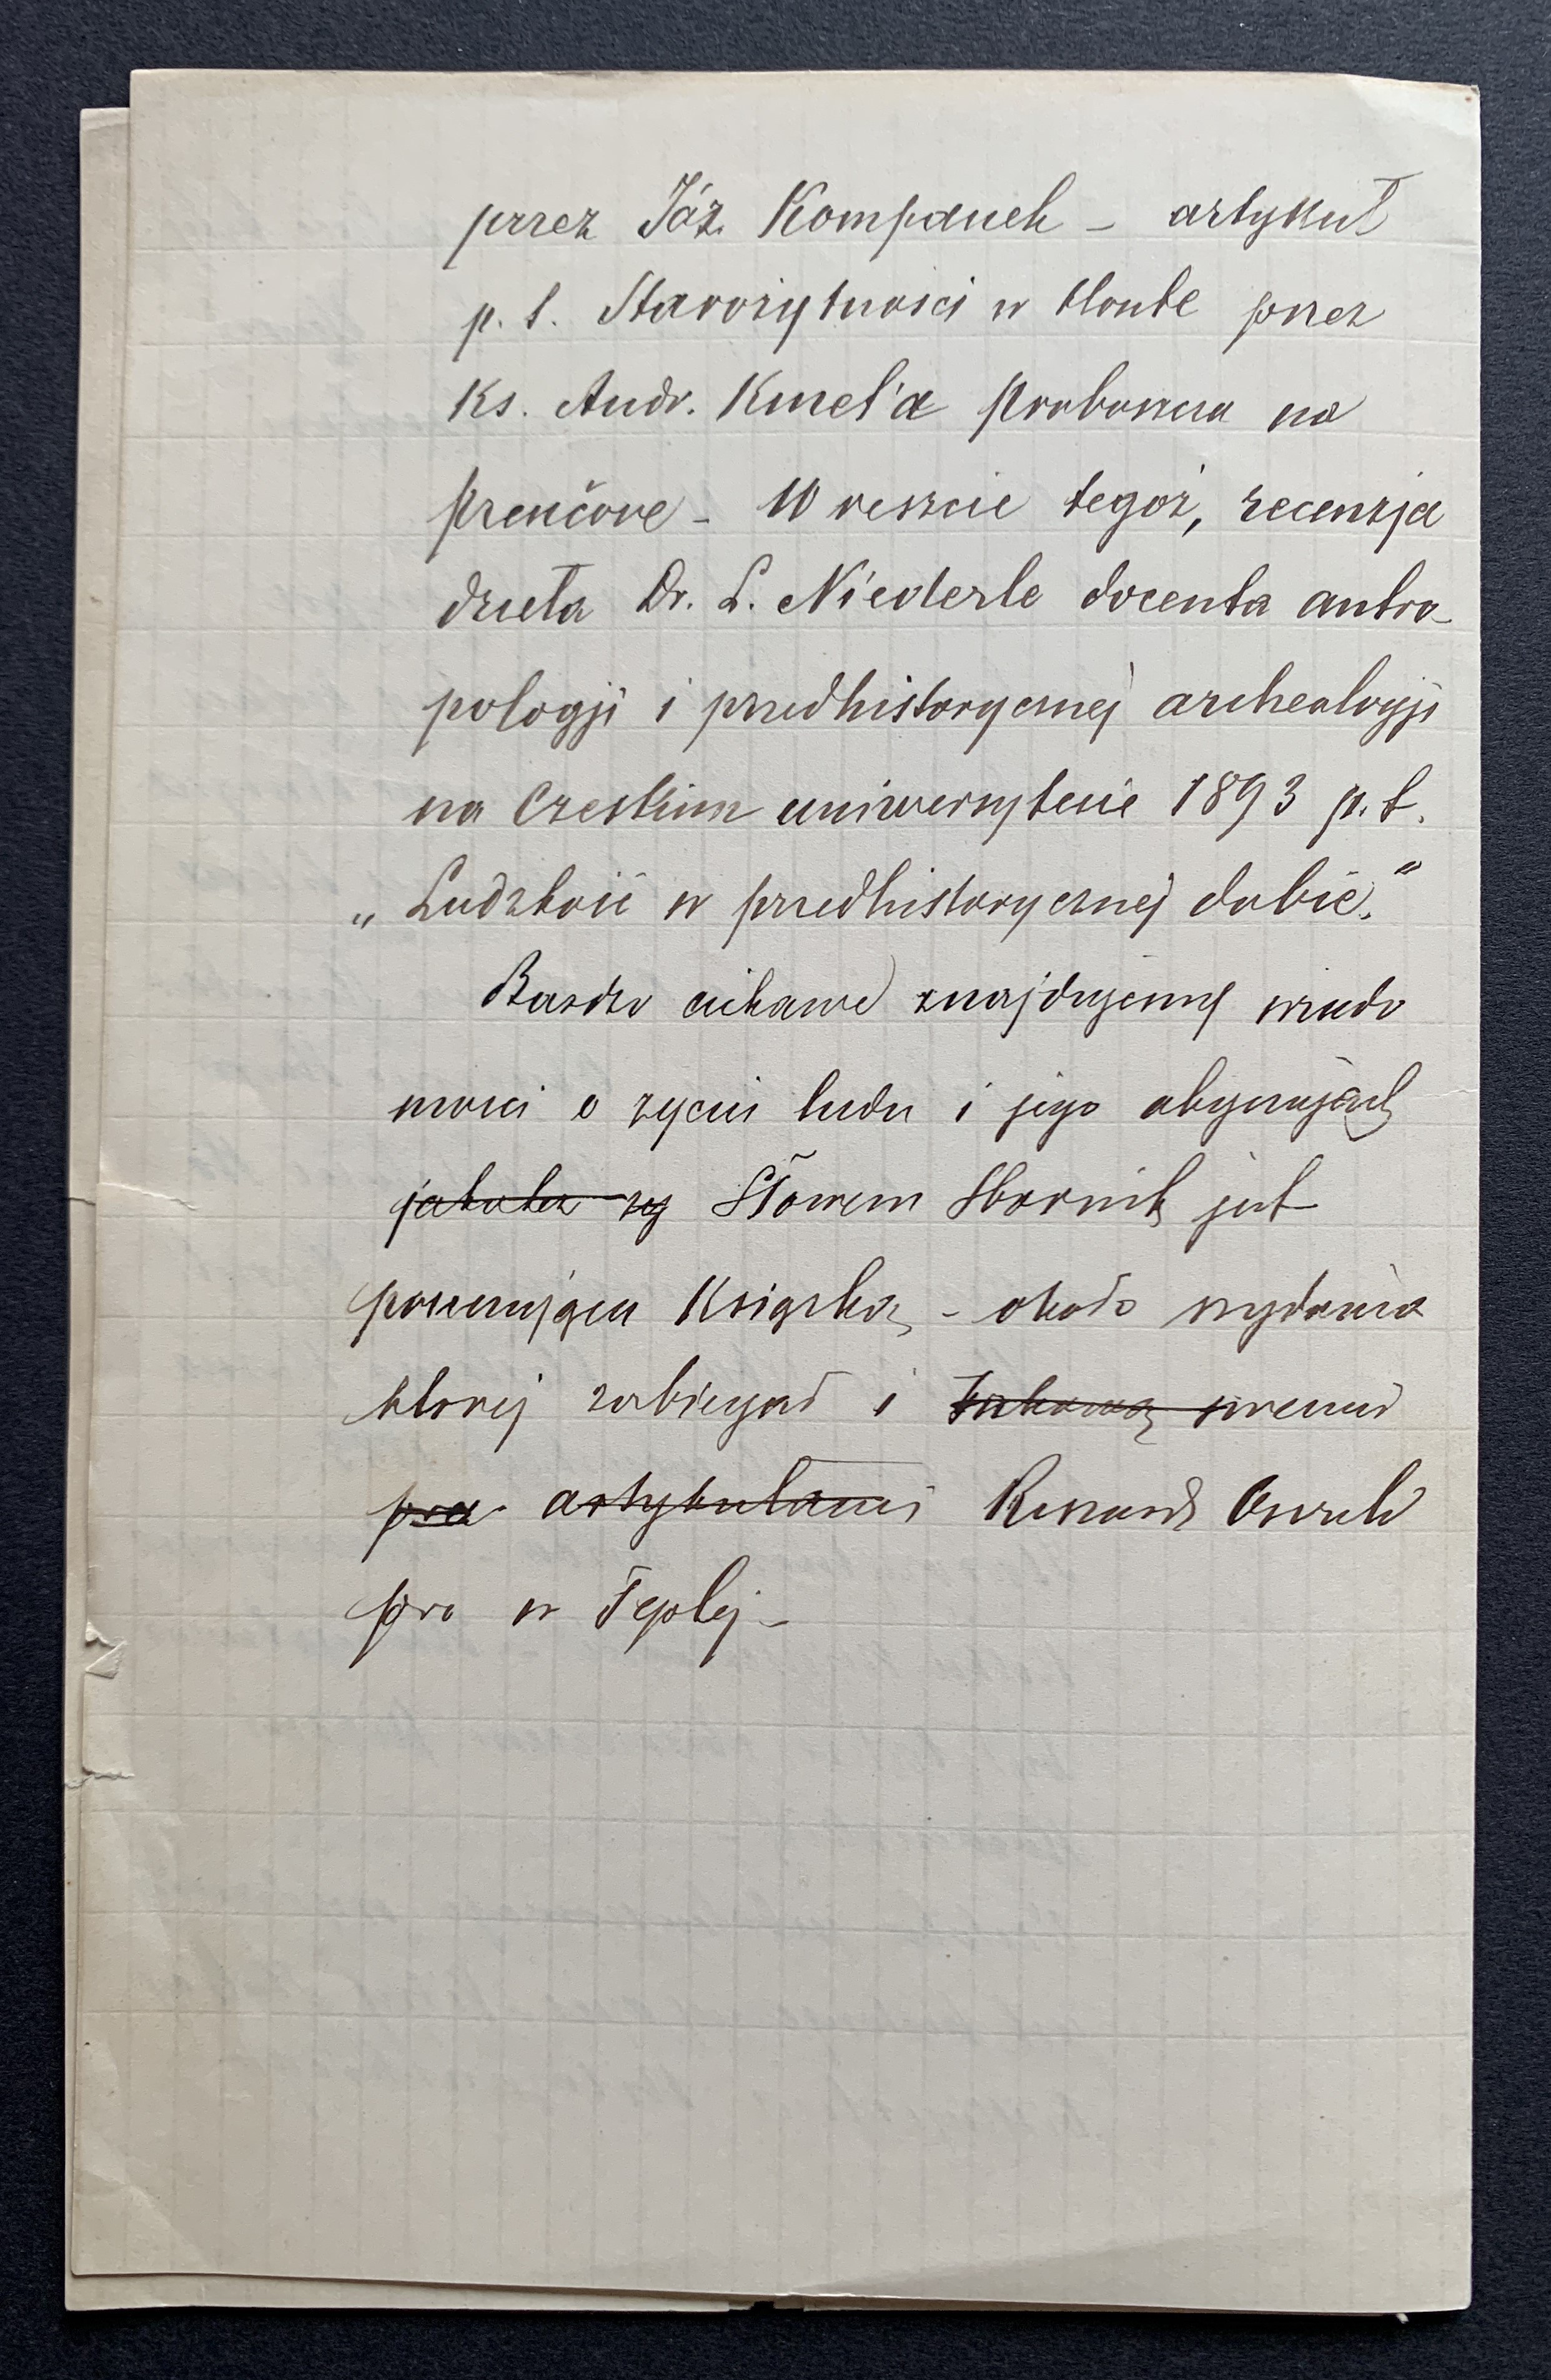 przez Józ. Kompanek – artykuł
p. t. Starożytności w Honte przez
Ks. Andr. Kmeťa proboszcza na
Prenčove – Wreszcie tegoż, recenzja
dzieła Dr. L. Niederle docenta antro-
pologji i przedhistorycznej archeologji
na Czeskim uniwersytecie 1893 p. t.
„Ludzkość w przedhistorycznej dobie."
Bardzo ciekawe znajdujemy wiado
mości o życiu ludu i jego obyczajach
jakoteż Słowem Sbornik jest
pouczającą Książką – około wydania
której zabiegał i
artykułami Ryszard
pra w Teplej –